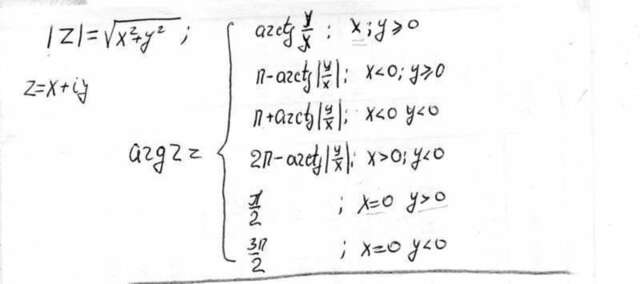 |Z|=√(x²+y²) ;
z=x+iy
argz=
arctg y/x ; x;y≥0
π-arctg|y/x|; x<0; y≥0
π+arctg|y/x|; x<0 y<0
2π-arctg|y/x|; x>0; y<0
π/2 ; x=0 y>0
3π/2 ; x=0 y<0